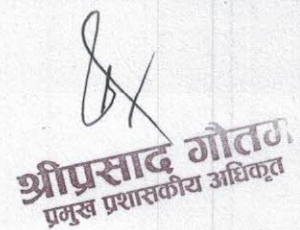 श्रीप्रसाद गौतम
प्रमुख प्रशासकीय अधिकृत